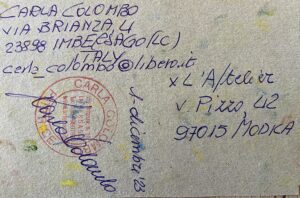 CARLA COLOMBO
VIA BRIANZA, 4
23898 IMBERSAGO (LC)
ITALY
carla_colombo@libero.it
x L'A/telier
v Pizzo, 42
97015 MODICA
1-dicembre '23
CARLA COLOMBO
Carla Colombo